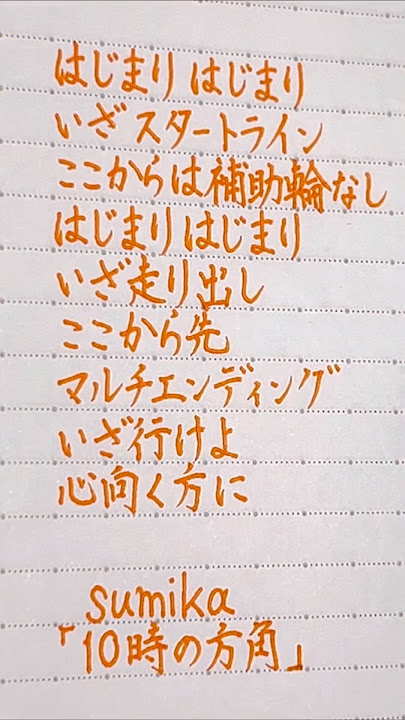 はじまり はじまり
いざ スタートライン
ここからは補助輪なし
はじまり はじまり
いざ走り出し
ここから先
マルチエンディング
いざ行けよ
心向く方に
sumika
「10時の方角」